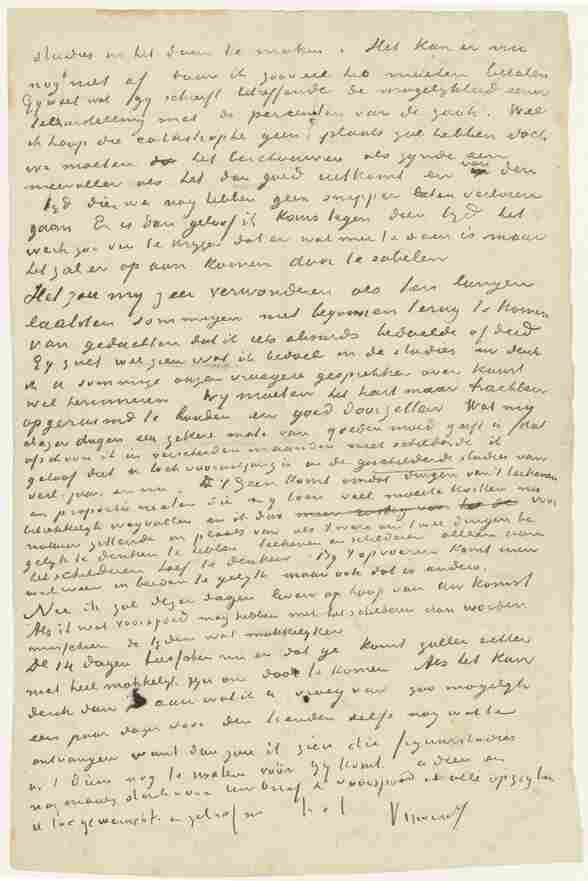 studies in het duin te maken. Het kan er nu
nog niet af daar ik zooveel heb moeten betalen
Gij weet wat gij schrijft betreffende de mogelijkheid eener
teleurstelling met de percenten van de zaak. Wel
ik hoop die catastrophe geen plaats zal hebben doch
we moeten het beschouwen als zijnde een
meevaller als het dan goed uitkomt en van den
tijd dien we nog hebben geen snipper laten verloren
gaan. Er is dan geloof ik kans tegen dien tijd het
werk zoo ver te krijgen dat er wat mee te doen is maar
het zal er op aan komen door te sabelen
Het zou mij zeer verwonderen als ten langen
laatsten sommigen niet begonnen terug te komen
van gedachten dat ik iets absurds bedoelde of deed
Gij zult wel zien wat ik bedoel in de studies en doch
ik u sommige onzer vroegere gesprekken over kunst
wel herinneren. Wij moeten het hart maar trachten
opgeruimd te houden en goed doorzetten. Wat mij
dezer dagen een zekere mate van goeden moed geeft is dat
ofschoon ik in verscheiden maanden niet schilderde ik
geloof dat er toch vooruitgang is in de geschilderde studies van
verl. jaar en nu. 't Geen komt omdat dingen van 't teekenen
en proportie maten die mij toen veel moeite kostten nu
betrekkelijk wegvallen en ik dus voor
natuur zittende in plaats van als 't ware aan twee dingen te
gelijk te denken te hebben teekenen en schilderen alleen aan
het schilderen hoef te denken. Bij 't opvoeren komt men
wel weer in beiden te gelijk maar ook dat is anders.
Nu ik zal dezer dagen leven op hoop van uw komst
Als ik wat voorspoed mag hebben met het schilderen dan worden
misschien de tijden wat makkelijker
De 14 dagen heefster nu en dat ge komt zullen echter
niet heel makkelijk zijn om door te komen. Als het kan
denk dan aan wat ik u vroeg van zoo mogelijk
een paar dagen voor den tienden zelfs nog wat te
ontvangen want dan zou ik zien die figuurstudies
in 't duin nog te maken vóór gij komt. adieu en
nogmaals dank voor uw brief & voorspoed in alle opzigten
u toegewenscht. en geloof me t. à t. Vincent